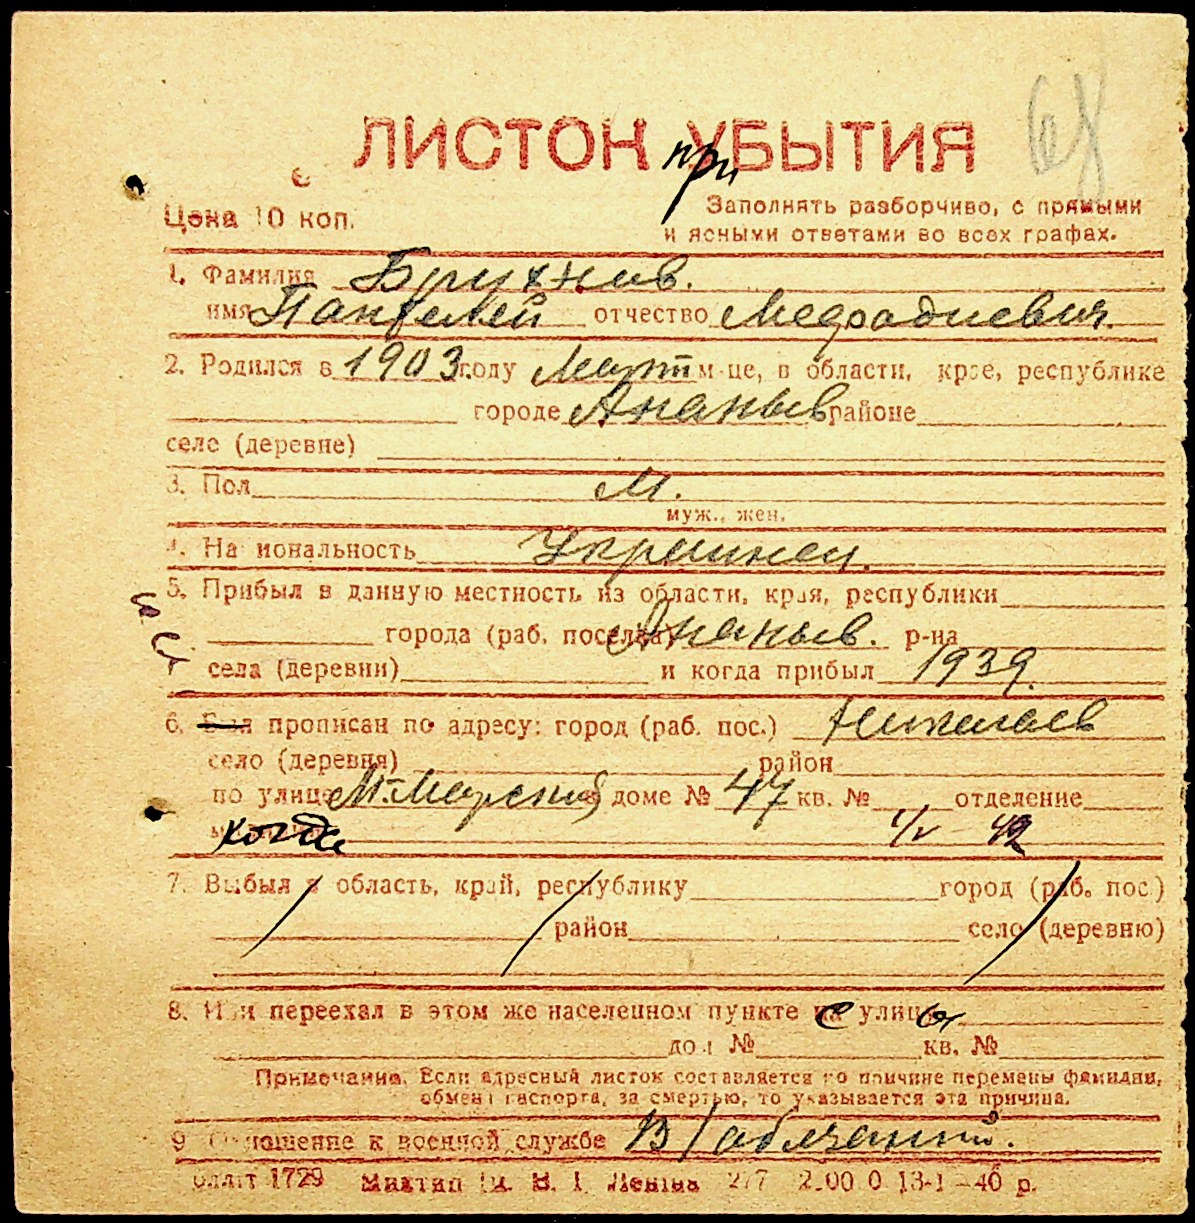 ЛИСТОК УБЫТИЯ
при
Цена 10 коп.
Заполнять разборчиво, с прямыми
и ясными ответами во всех графах.
1. Фамилия
имя Пантелей отчество
2. Родился в 1903 году Март м-це, в области, крае, республике
городе Ананьев районе
село (деревне)
3. Пол М.
муж., жен.
4. Национальность Украинец.
5. Прибыл в данную местность из области, края, республики
города (раб. поселка) Ананьев. р-на
села (деревни) и когда прибыл 1939.
6. Был прописан по адресу: город (раб. пос.) Николаев
село (деревня) район
по улице М.-Морской доме № 47 кв. № отделение
когда 42
7. Выбыл в область, край, республику город (раб. пос.)
район село (деревню)
8. Или переехал в этом же населенном пункте с улицы
дом № кв. №
Примечание. Если адресный листок составляется по причине перемены фамилии,
обмена паспорта, за смертью, то указывается эта причина.
9 Отношение к военной службе В/обязанный.
1729 Ленiна 13-1-40 р.